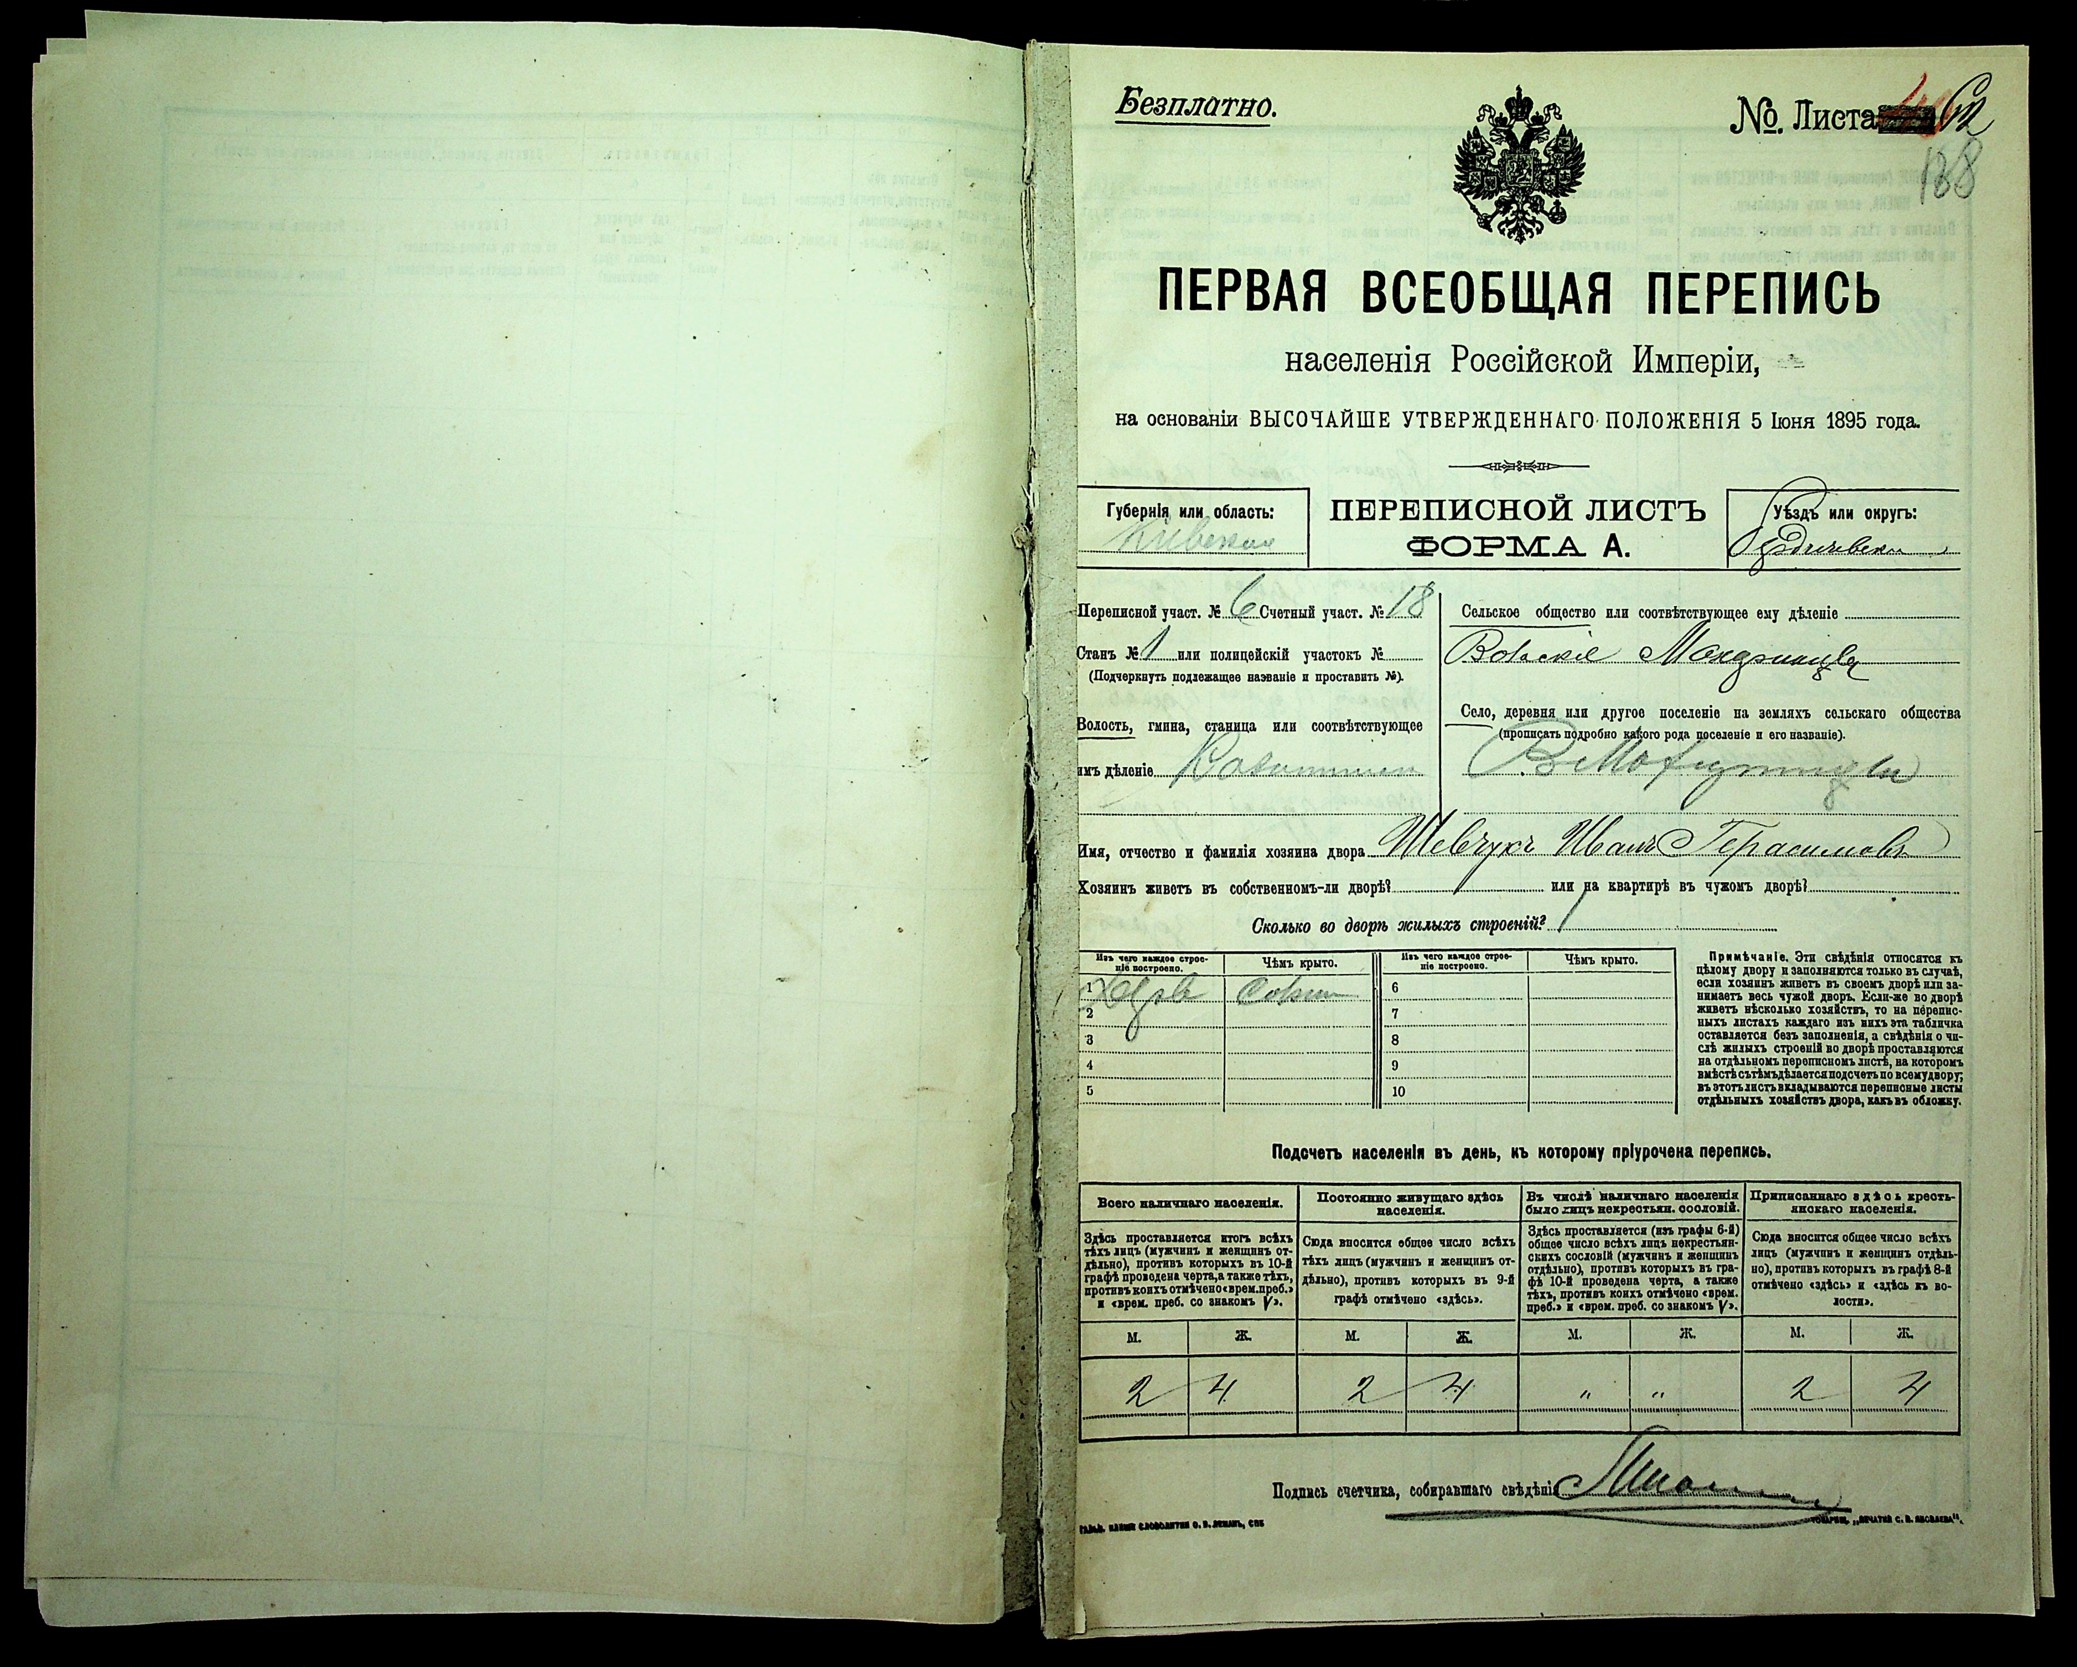 Безплатно.
№. Листа 62
188
ПЕРВАЯ ВСЕОБЩАЯ ПЕРЕПИСЬ
населенія Россійской Имперіи,
на основаніи ВЫСОЧАЙШЕ УТВЕРЖДЕННАГО ПОЛОЖЕНІЯ 5 Іюня 1895 года.
Губернія или область:
Кіевская
ПЕРЕПИСНОЙ ЛИСТЪ
ФОРМА А.
Уѣздъ или округъ:
Бердичевски
Переписной участ. № 6 Счетный участ. № 18
Станъ № 1 или полицейскій участокъ №
(Подчеркнуть подлежащее названіе и проставить №).
Волость, гмина, станица или соотвѣтствующее
имъ дѣленіе
Сельское общество или соотвѣтствующее ему дѣленіе
Село, деревня или другое поселеніе на земляхъ сельскаго общества
(прописать подробно какого рода поселеніе и его названіе).
Имя, отчество и фамилія хозяина двора Шевчукъ Иванъ Герасимовъ
Хозяинъ живетъ въ собственномъ-ли дворѣ? или на квартирѣ въ чужомъ дворѣ?
Сколько во дворѣ жилыхъ строеній? 1
Изъ чего каждое строе-
ніе построено.
Чѣмъ крыто.
Изъ чего каждое строе-
ніе построено.
Чѣмъ крыто.
1 6
2 7
3 8
4 9
5 10
Примѣчаніе. Эти свѣдѣнія относятся къ
цѣлому двору и заполняются только въ случаѣ,
если хозяинъ живетъ въ своемъ дворѣ или за-
нимаетъ весь чужой дворъ. Если-же во дворѣ
живетъ нѣсколько хозяйствъ, то на перепис-
ныхъ листахъ каждаго изъ нихъ эта табличка
оставляется безъ заполненія, а свѣдѣнія о чи-
слѣ жилыхъ строеній во дворѣ проставляются
на отдѣльномъ переписномъ листѣ, на которомъ
вмѣстѣ съ тѣмъ дѣлается подсчетъ по всему двору;
въ этотъ листъ вкладываются переписные листы
отдѣльныхъ хозяйствъ двора, какъ въ обложку.
Подсчетъ населенія въ день, къ которому пріурочена перепись.
Всего наличнаго населенія.
Постоянно живущаго здѣсь
населенія.
Въ числѣ наличнаго населенія
было лицъ некрестьян. сословій.
Приписаннаго здѣсь кресть-
янскаго населенія.
Здѣсь проставляется итогъ всѣхъ
тѣхъ лицъ (мужчинъ и женщинъ от-
дѣльно), противъ которыхъ въ 10-й
графѣ проведена черта, а также тѣхъ,
противъ коихъ отмѣчено «врем. преб.»
и «врем. преб. со знакомъ V».
Сюда вносится общее число всѣхъ
тѣхъ лицъ (мужчинъ и женщинъ от-
дѣльно), противъ которыхъ въ 9-й
графѣ отмѣчено «здѣсь».
Здѣсь проставляется (изъ графы 6-й)
общее число всѣхъ лицъ некрестьян-
скихъ сословій (мужчинъ и женщинъ
отдѣльно), противъ которыхъ въ гра-
фѣ 10-й проведена черта, а также
тѣхъ, противъ коихъ отмѣчено «врем.
преб.» и «врем. преб. со знакомъ V».
Сюда вносится общее число всѣхъ
лицъ (мужчинъ и женщинъ отдѣль-
но), противъ которыхъ въ графѣ 8-й
отмѣчено «здѣсь» и «здѣсь къ во-
лости».
М. Ж. М. Ж. М. Ж. М. Ж.
2 4 2 4 " " 2 4
Подпись счетчика, собиравшаго свѣдѣнія